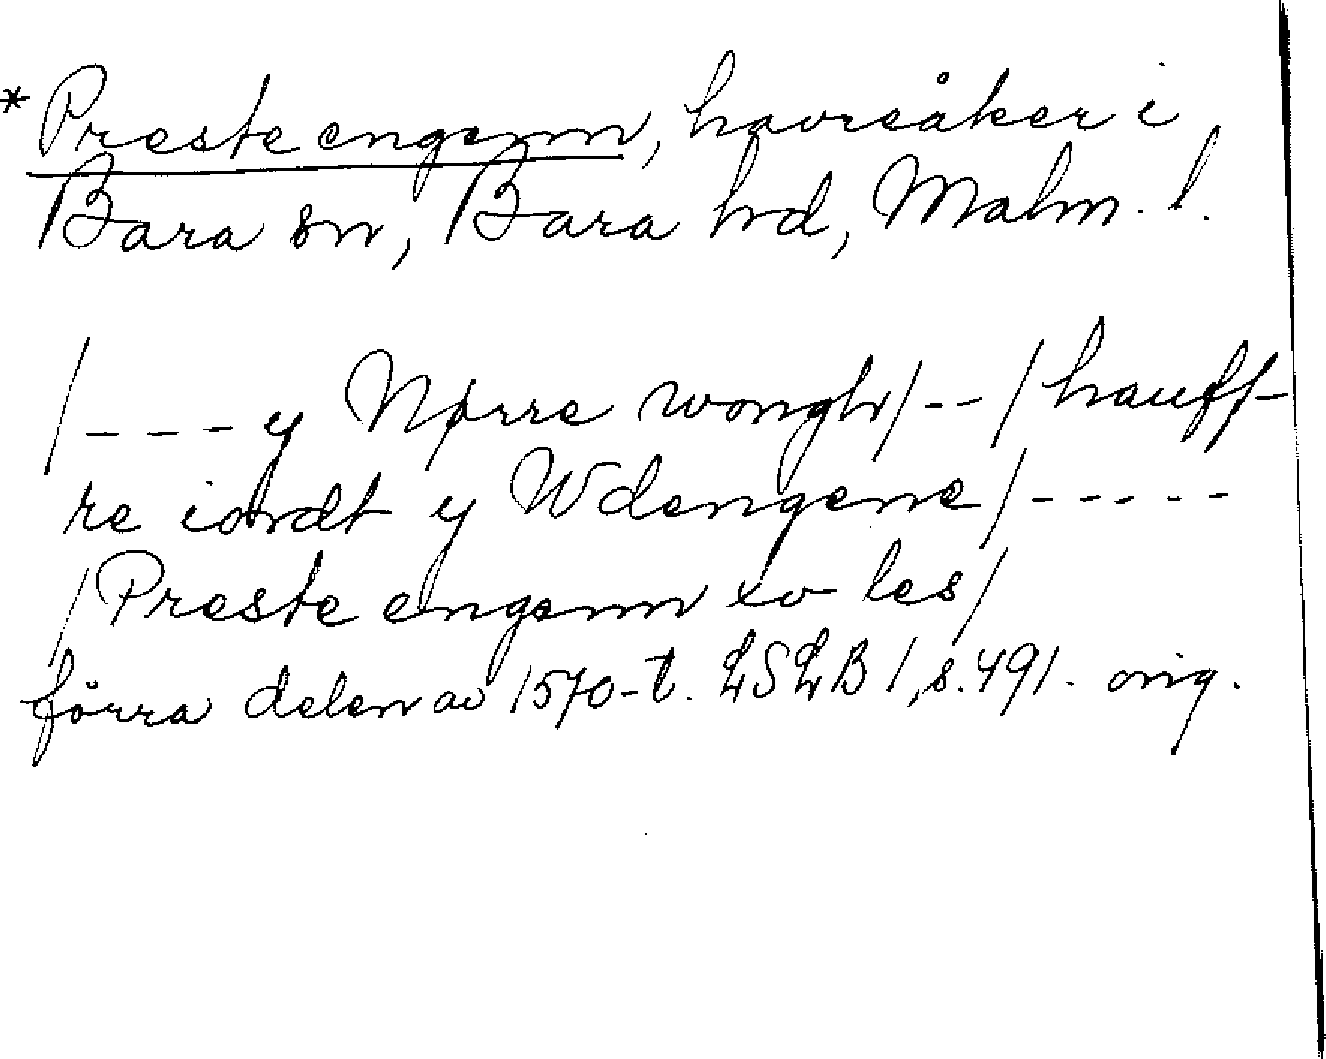 * Preste engenn, havreåker i
Bara sn, Bara hd, Malm. l.
/---y Nørre wongh/--/hauff-
re iordt y Wdengene/-----
/Preste engenn xv les/
förra delen av 1570-t. LSLB 1, s. 491. orig.